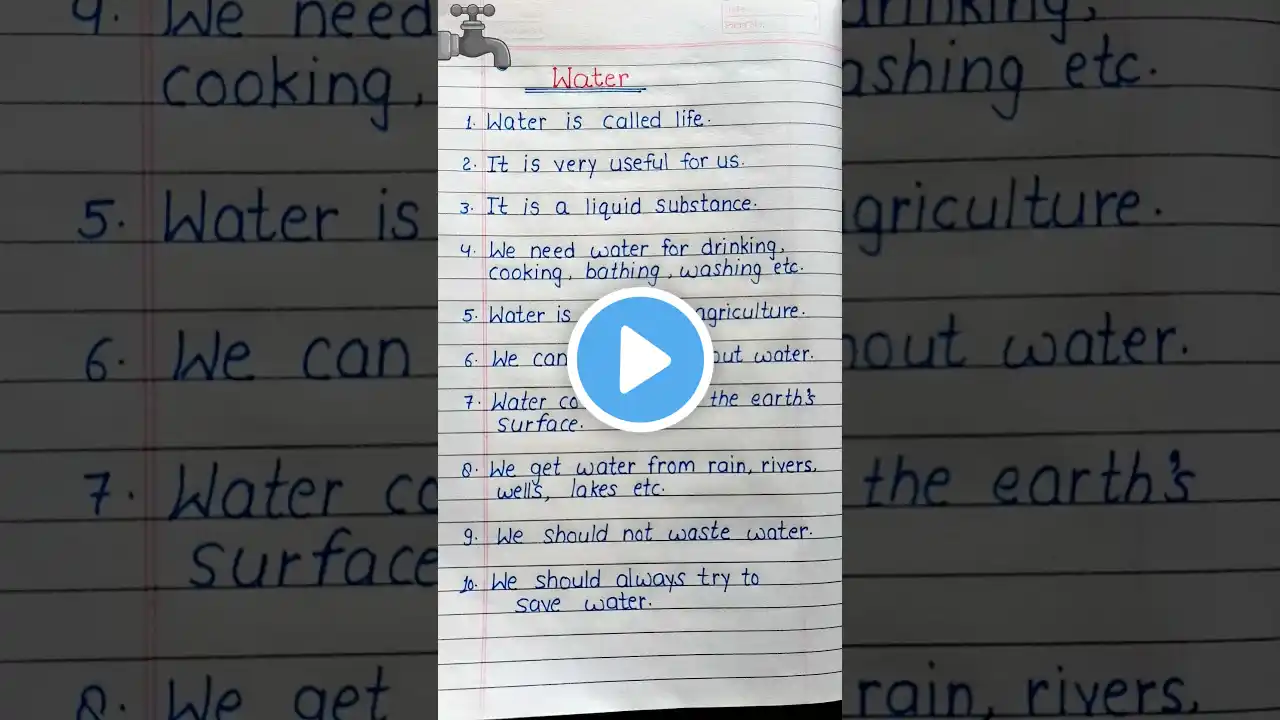 Water
1. Water is called life.
2. It is very useful for us.
3. It is a liquid substance.
4. We need water for drinking,
cooking, bathing, washing etc.
5. Water is agriculture.
6. We can water.
7. Water the earth's
surface.
8. We get water from rain, rivers,
wells, lakes etc.
9. We should not waste water.
10. We should always try to
save water.